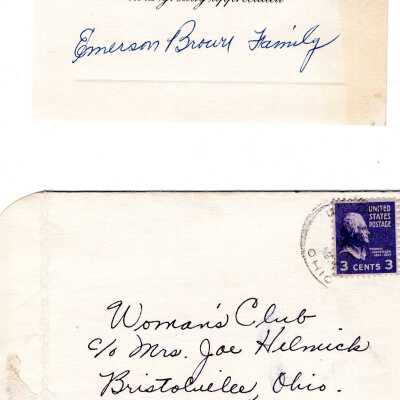 Emerson Brown Family
UNITED
STATES
POSTAGE
3 CENTS 3
OHIO
Woman's Club
c/o Mrs. Joe Helmick
Bristolvilee, Ohio.